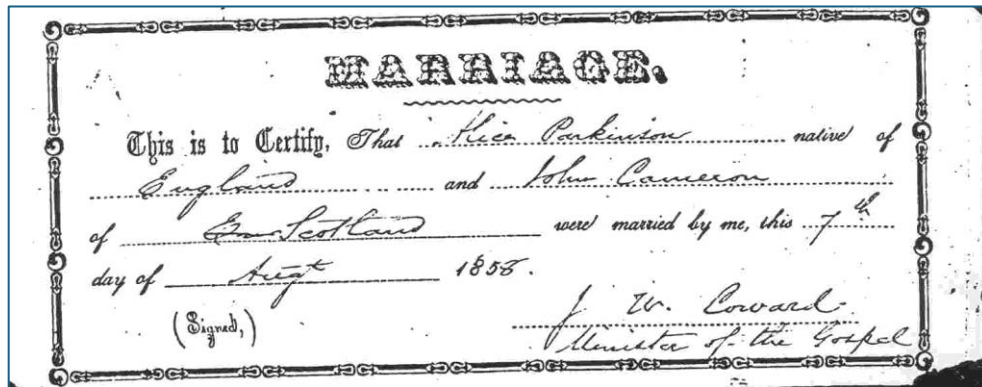 MARRIAGE.
This is to Certify, That Alice Parkinson native of
England and John Cameron
of Scotland were married by me, this 7th
day of Augt 1858.
(Signed,) J. W. Coward
Minister of the Gospel